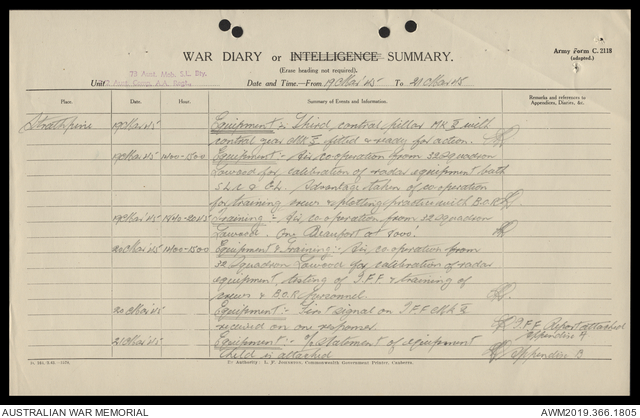 Army Form C. 2118
(adapted.)
WAR DIARY or INTELLIGENCE SUMMARY.
(Erase heading not required).
73 Aust Mob. S.L. Bty.
Unit 7 Aust. Comp. A.A. Regt. Date and Time—From 19 Mar '45 To 21 Mar '45
Place. Date. Hour. Summary of Events and Information. Remarks and references to Appendices, Diaries, &c.
Strathpine 19 Mar '45 Equipment :- Third control pillar Mk V with
control gear Mk V fitted & ready for action.
19 Mar '45 1400-1500 Equipment :- Air co-operation from 32 Squadron
Lowood for calibration of radar equipment both
S.L.C & E.L. Advantage taken of co-operation
for training crews & plotting practice with B.O.R.
19 Mar '45 1940-2045 Training :- Air co-operation from 32 Squadron
Lowood. One Beaufort at 5000'.
20 Mar '45 1400-1500 Equipment & Training :- Air co-operation from
32 Squadron Lowood for calibration of radar
equipment, testing of I.F.F & training of
crews & B.O.R personnel
20 Mar '45 Equipment :- First signal on I.F.F Mk
received on one responser. I.F.F Report attached
appendix A
21 Mar '45 Equipment :- statement of equipment
held is attached appendix B
By Authority: L. F. Johnston, Commonwealth Government Printer, Canberra.
AUSTRALIAN WAR MEMORIAL AWM2019.366.1805